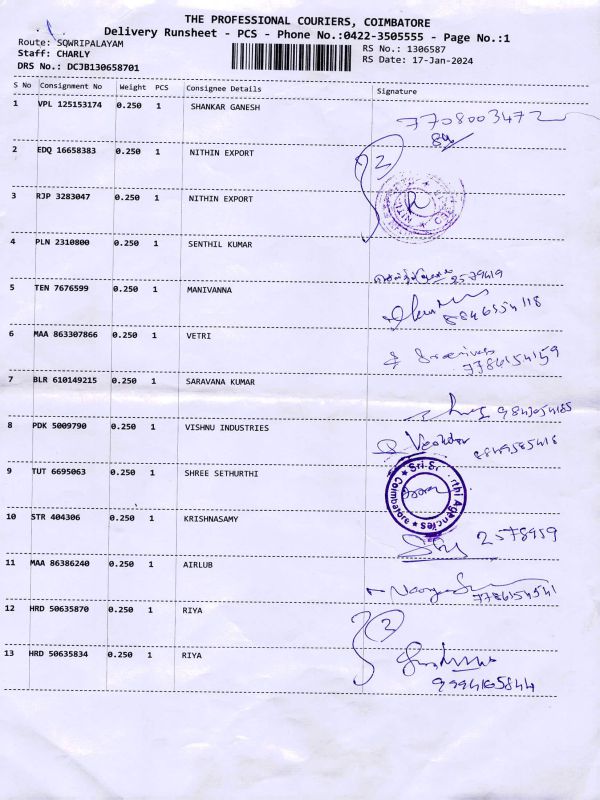 THE PROFESSIONAL COURIERS, COIMBATORE
Delivery Runsheet - PCS - Phone No.:0422-3505555 - Page No.:1
Route: SQWRIPALAYAM
RS No.: 1306587
Staff: CHARLY
RS Date: 17-Jan-2024
DRS No.: DCJB130658701
S No Consignment No Weight PCS Consignee Details Signature
1 VPL 125153174 0.250 1 SHANKAR GANESH 7708003472
2 EDQ 16658383 0.250 1 NITHIN EXPORT
3 RJP 3283047 0.250 1 NITHIN EXPORT
4 PLN 2310800 0.250 1 SENTHIL KUMAR
5 TEN 7676599 0.250 1 MANIVANNA
6 MAA 863307866 0.250 1 VETRI
7786154159
7 BLR 610149215 0.250 1 SARAVANA KUMAR
8 PDK 5009790 0.250 1 VISHNU INDUSTRIES
9 TUT 6695063 0.250 1 SHREE SETHURTHI
Agencies Coimbatore
10 STR 404306 0.250 1 KRISHNASAMY
2578959
11 MAA 86386240 0.250 1 AIRLUB
7786154541
12 HRD 50635870 0.250 1 RIYA
13 HRD 50635834 0.250 1 RIYA
9994165844